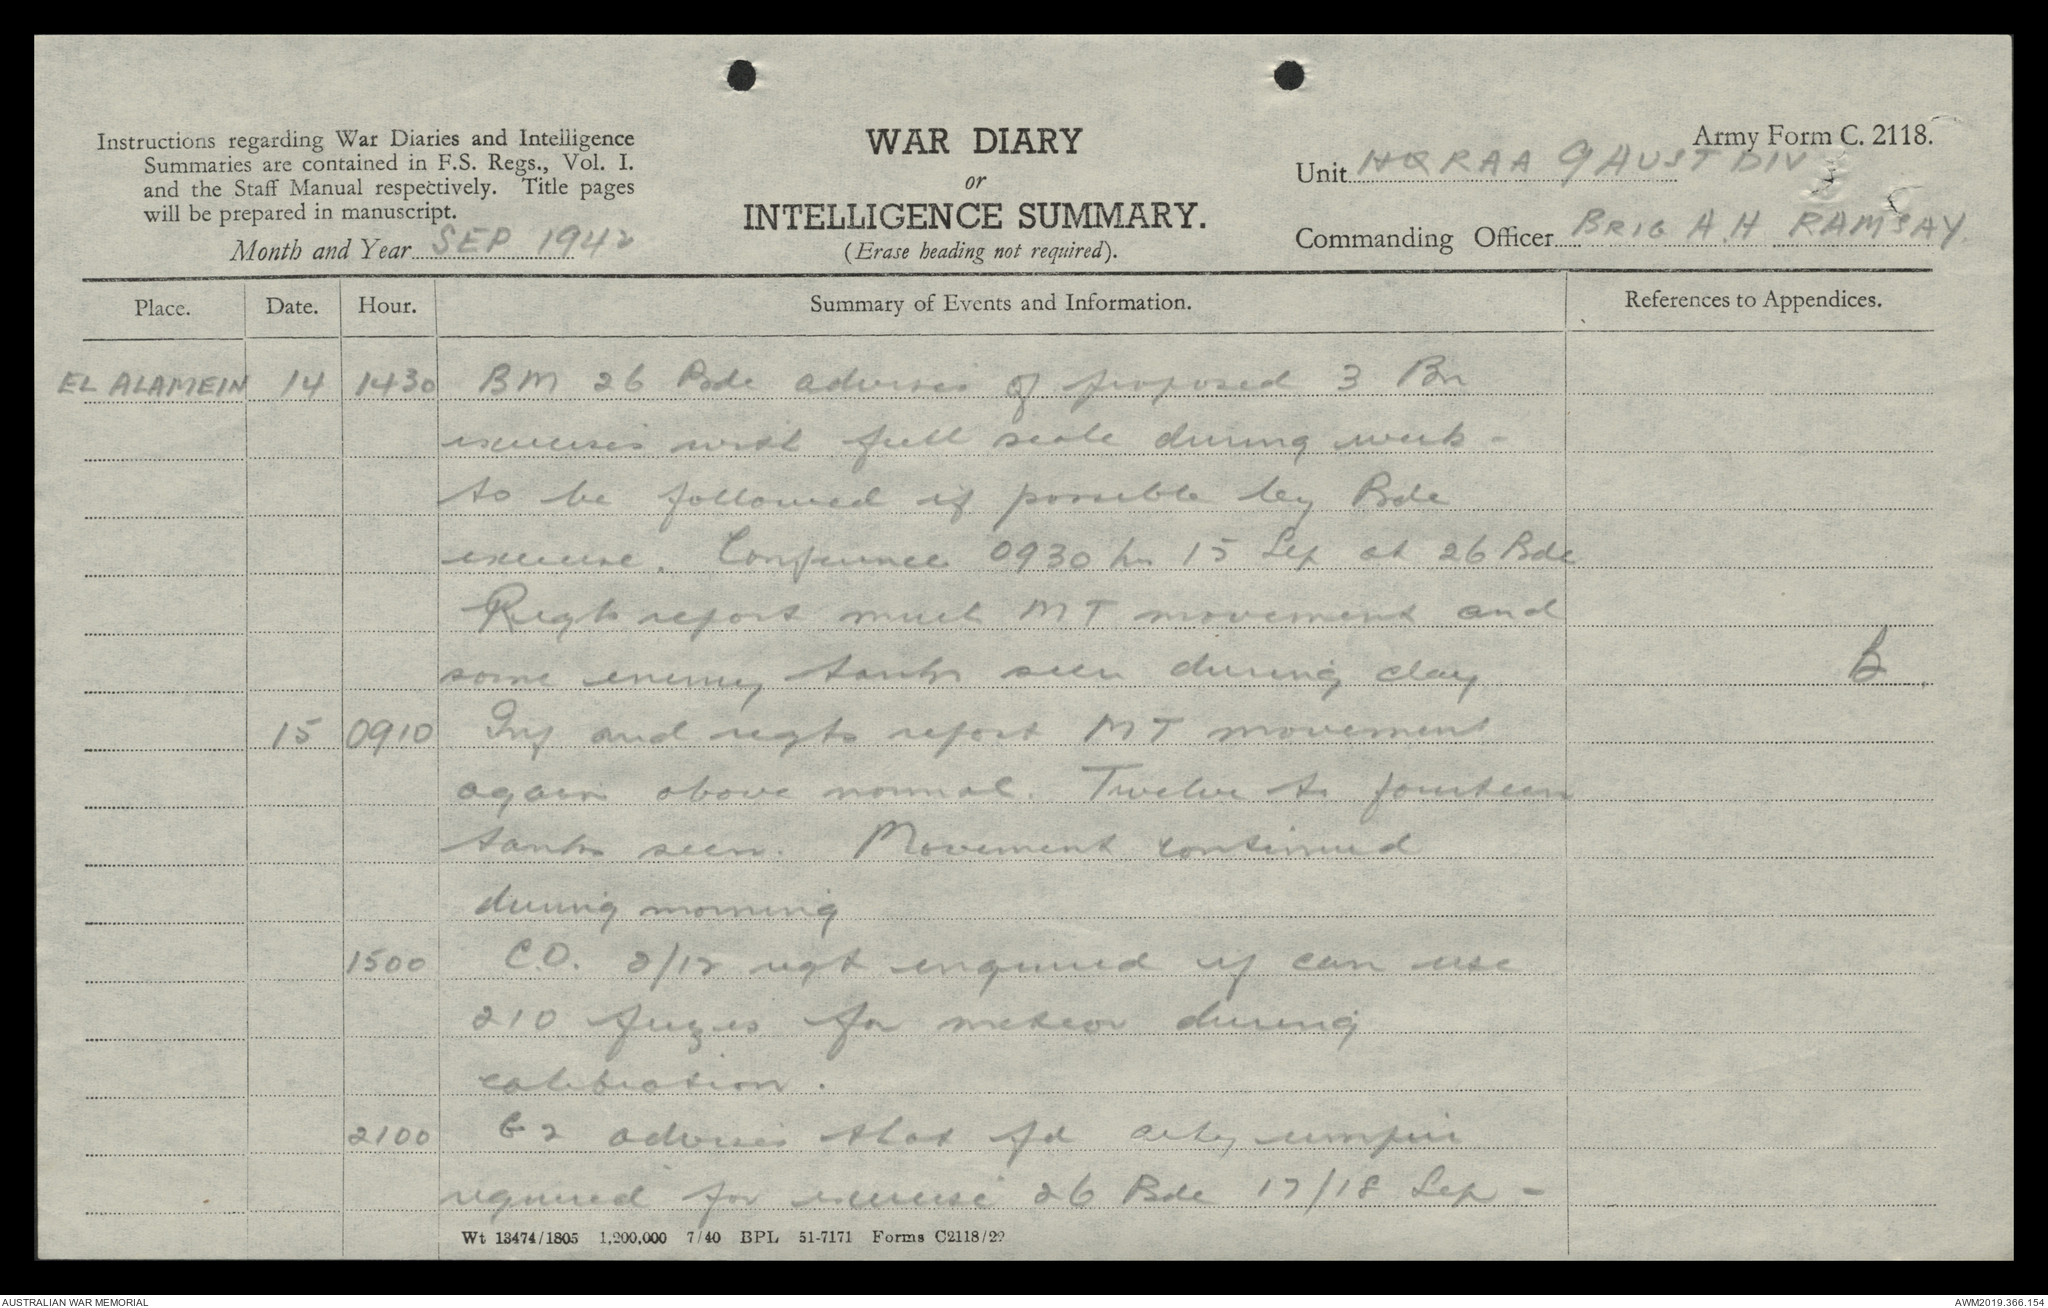 Instructions regarding War Diaries and Intelligence
Summaries are contained in F.S. Regs., Vol. I.
and the Staff Manual respectively. Title pages
will be prepared in manuscript.
Month and Year SEP 1942
WAR DIARY
or
INTELLIGENCE SUMMARY.
(Erase heading not required).
Army Form C. 2118.
Unit HQ RAA 9 AUST DIV
Commanding Officer BRIG A.H RAMSAY.
Place. Date. Hour. Summary of Events and Information. References to Appendices.
EL ALAMEIN 14 1430 BM 26 Bde advises of proposed 3 Bn
exercises with full scale during week -
to be followed if possible by Bde
exercise. Conference 0930 hrs 15 Sep at 26 Bde
Regts report much MT movement and
some enemy tanks seen during day B
15 0910 Inf and regts report MT movement
again above normal. Twelve to fourteen
tanks seen. Movement continued
during morning
1500 C.O. 2/12 regt enquired if can use
210 fuzes for meteor during
calibration.
2100 G2 advises that fd arty umpire
required for exercise 26 Bde 17/18 Sep -
Wt 13474/1805 1,200,000 7/40 BPL 51-7171 Forms C2118/22
AUSTRALIAN WAR MEMORIAL
AWM2019.366.154